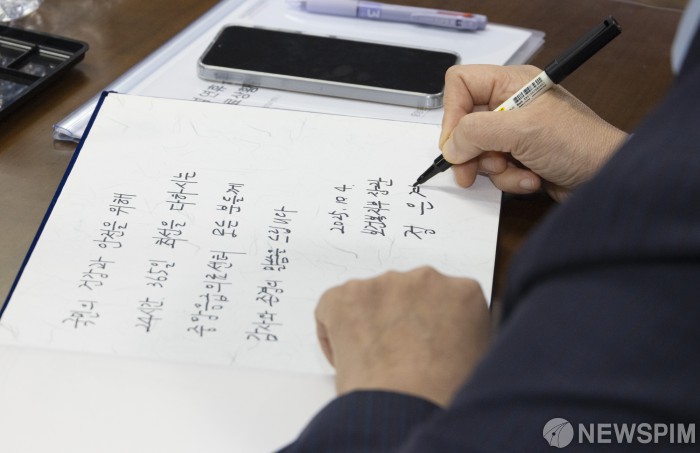 국민의 건강과 안전을 위해
24시간 365일 최선을 다하시는
중앙응급의료센터 모든 분들께
감사와 존경의 말씀을 드립니다
2025. 10. 4.
보건복지부 장관
정 은
NEWSPIM